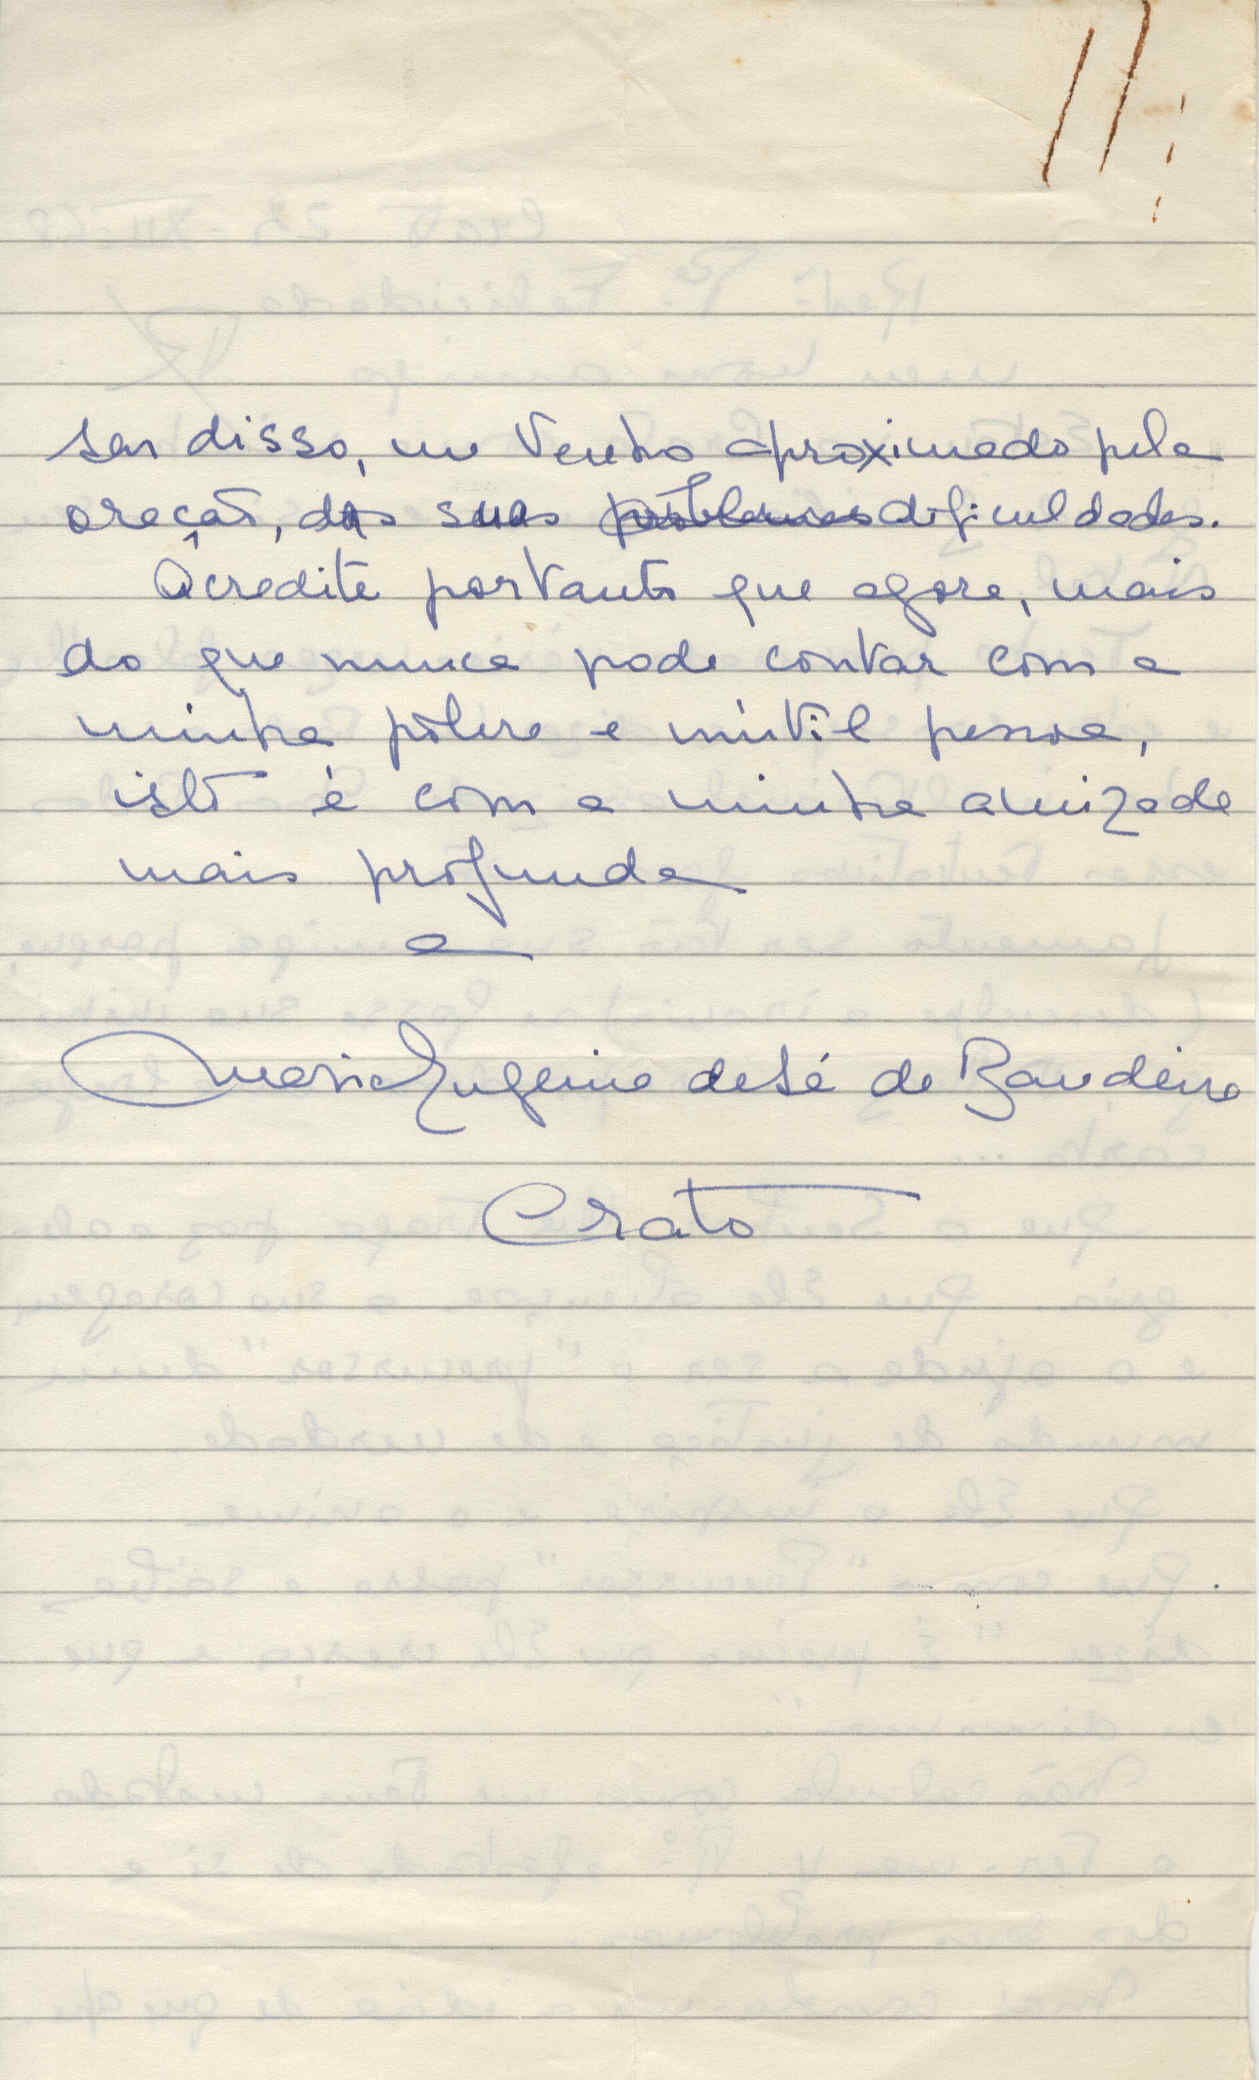 sar disso, me venho aproximado pela
oração, das suas problemas dificuldades.
Acredite portanto que agora, mais
do que nunca pode contar com a
minha pobre e inútil pessoa,
isto é com a minha amizade
mais profunda
a
Maria Eugenia de Sá de Bandeira
Crato